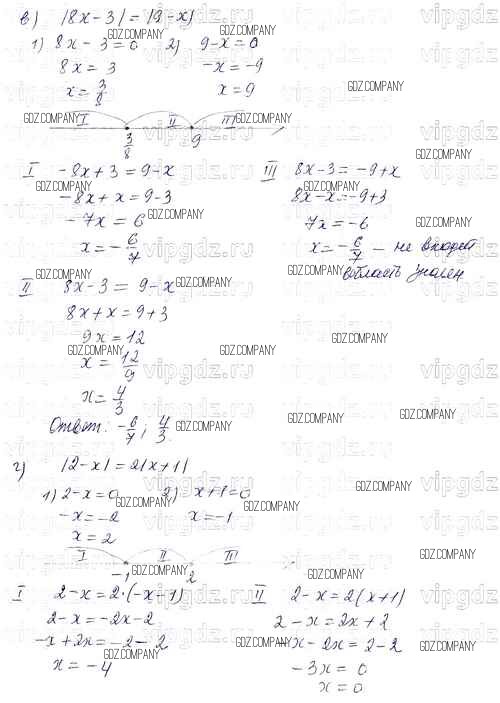 в) |8x - 3| = |9 - x|
1) 8x - 3 = 0 2) 9 - x = 0
8x = 3 -x = -9
x = 3/8 x = 9
I II III
3/8 9
I -8x + 3 = 9 - x
-8x + x = 9 - 3
-7x = 6
x = -6/7
III 8x - 3 = -9 + x
8x - x = -9 + 3
7x = -6
x = -6/7 - не входит
в область значен
II 8x - 3 = 9 - x
8x + x = 9 + 3
9x = 12
x = 12/9
x = 4/3
Ответ: -6/7; 4/3
г) |2 - x| = 2|x + 1|
1) 2 - x = 0 2) x + 1 = 0
-x = -2 x = -1
x = 2
I II III
-1 2
I 2 - x = 2·(-x - 1)
2 - x = -2x - 2
-x + 2x = -2 - 2
x = -4
II 2 - x = 2(x + 1)
2 - x = 2x + 2
-x - 2x = 2 - 2
-3x = 0
x = 0
vipgdz.ru
GDZ.COMPANY